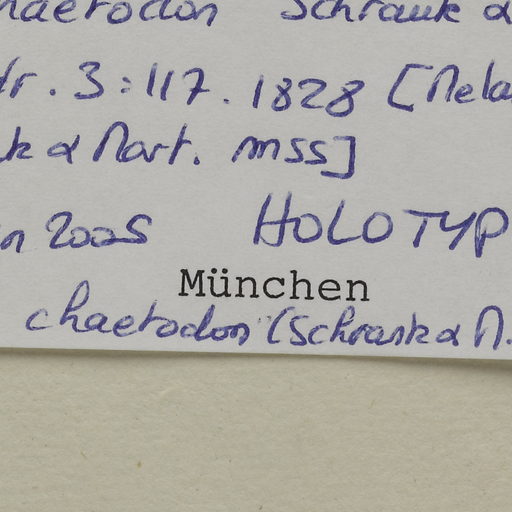 haetodon Schrank &
dr. 3:117. 1828 [Mela
k & Mart. mss]
n 2005 HOLOTYP
München
chaetodon (Schrank & M.